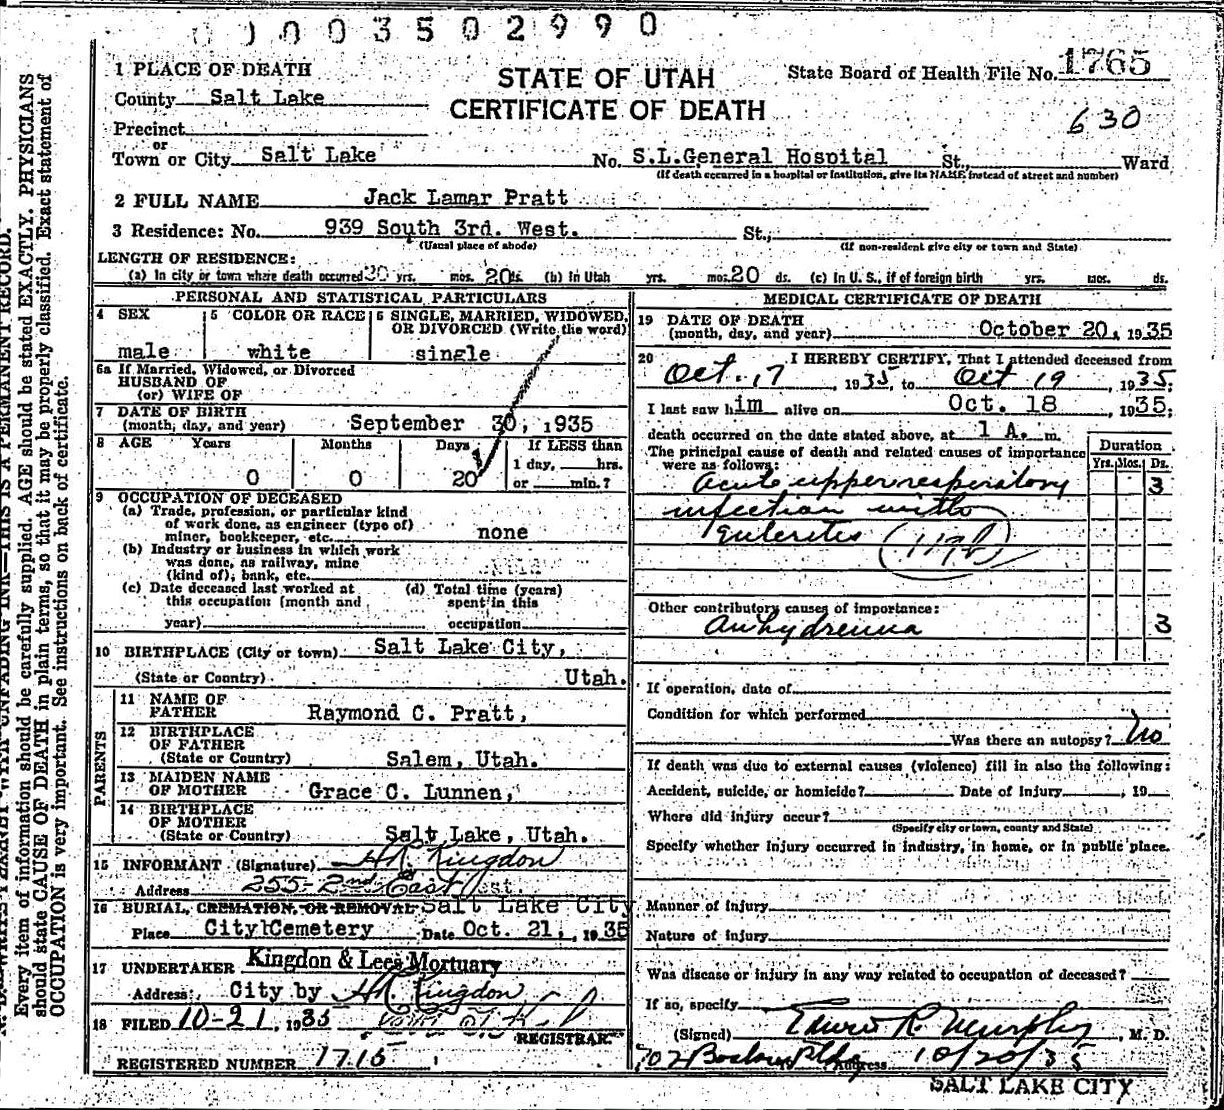 0003502990
1 PLACE OF DEATH
STATE OF UTAH
CERTIFICATE OF DEATH
State Board of Health File No. 1765
630
County Salt Lake
Precinct
or
Town or City Salt Lake No. S.L.General Hospital St., Ward
(If death occurred in a hospital or institution, give its NAME instead of street and number)
2 FULL NAME Jack Lamar Pratt
3 Residence: No. 939 South 3rd. West. St.,
(Usual place of abode) (If non-resident give city or town and State)
LENGTH OF RESIDENCE:
(a) In city or town where death occurred yrs. mos. 20 ds. (b) In Utah yrs. mos. 20 ds. (c) In U. S., if of foreign birth yrs. mos. ds.
PERSONAL AND STATISTICAL PARTICULARS
4 SEX
male
5 COLOR OR RACE
white
6 SINGLE, MARRIED, WIDOWED, OR DIVORCED (Write the word)
single
6a If Married, Widowed, or Divorced
HUSBAND OF
(or) WIFE OF
7 DATE OF BIRTH
(month, day, and year) September 30, 1935
8 AGE Years Months Days If LESS than
1 day, hrs.
0 0 20 or min.?
9 OCCUPATION OF DECEASED
(a) Trade, profession, or particular kind
of work done, as engineer (type of)
miner, bookkeeper, etc. none
(b) Industry or business in which work
was done, as railway, mine
(kind of); bank, etc.
(c) Date deceased last worked at
this occupation (month and
year)
(d) Total time (years)
spent in this
occupation
10 BIRTHPLACE (City or town) Salt Lake City,
(State or Country) Utah.
PARENTS
11 NAME OF
FATHER Raymond C. Pratt,
12 BIRTHPLACE
OF FATHER
(State or Country) Salem, Utah.
13 MAIDEN NAME
OF MOTHER Grace C. Lunnen,
14 BIRTHPLACE
OF MOTHER
(State or Country) Salt Lake, Utah.
15 INFORMANT (Signature) Kingdon
Address 255-2nd East st.
16 BURIAL, CREMATION, OR REMOVAL Salt Lake City
Place City Cemetery Date Oct. 21, 1935
17 UNDERTAKER Kingdon & Lees Mortuary
Address City by Kingdon
18 FILED 10-21, 1935
REGISTRAR.
REGISTERED NUMBER 1715
MEDICAL CERTIFICATE OF DEATH
19 DATE OF DEATH
(month, day, and year) October 20, 1935
20 I HEREBY CERTIFY, That I attended deceased from
Oct. 17, 1935, to Oct 19, 1935;
I last saw him alive on Oct. 18, 1935;
death occurred on the date stated above, at 1 A. m.
The principal cause of death and related causes of importance
were as follows:
Duration
Yrs. Mos. Ds.
Acute upper respiratory 3
infection with
Enteritis
Other contributory causes of importance:
Anhydremia 3
If operation, date of
Condition for which performed
Was there an autopsy? No
If death was due to external causes (violence) fill in also the following:
Accident, suicide, or homicide? Date of injury, 19
Where did injury occur?
(Specify city or town, county and State)
Specify whether injury occurred in industry, in home, or in public place.
Manner of injury
Nature of injury
Was disease or injury in any way related to occupation of deceased?
If so, specify
(Signed) R. Murphy, M. D.
702 Boston Bldg Address 10/20/35
SALT LAKE CITY
Every item of information should be carefully supplied. AGE should be stated EXACTLY. PHYSICIANS
should state CAUSE OF DEATH in plain terms, so that it may be properly classified. Exact statement of
OCCUPATION is very important. See instructions on back of certificate.